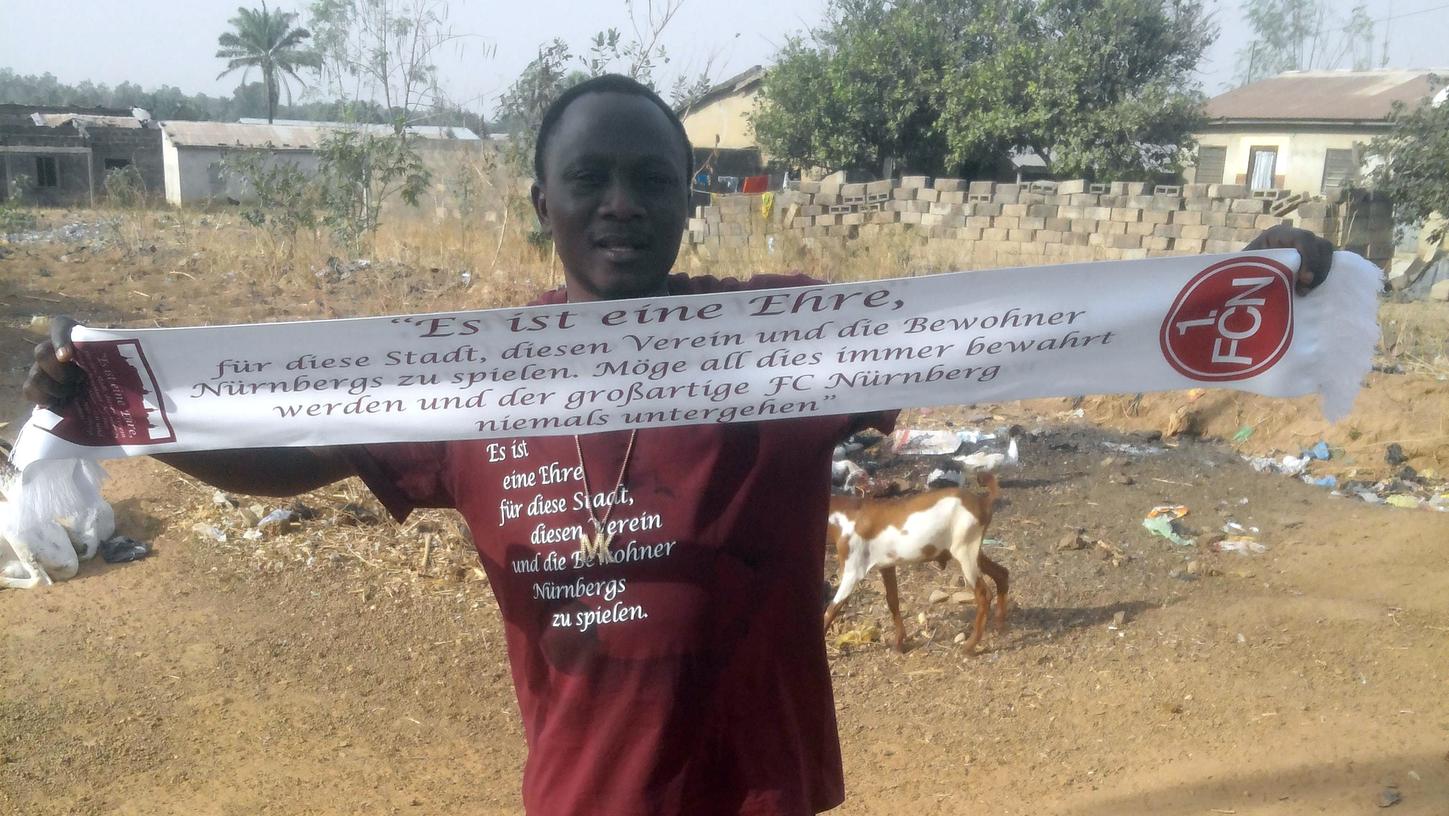 “Es ist eine Ehre,
für diese Stadt, diesen Verein und die Bewohner
Nürnbergs zu spielen. Möge all dies immer bewahrt
werden und der großartige FC Nürnberg
niemals untergehen”
1.
FCN
Es ist
eine Ehre
für diese Stadt,
diesen Verein
und die Bewohner
Nürnbergs
zu spielen.
M